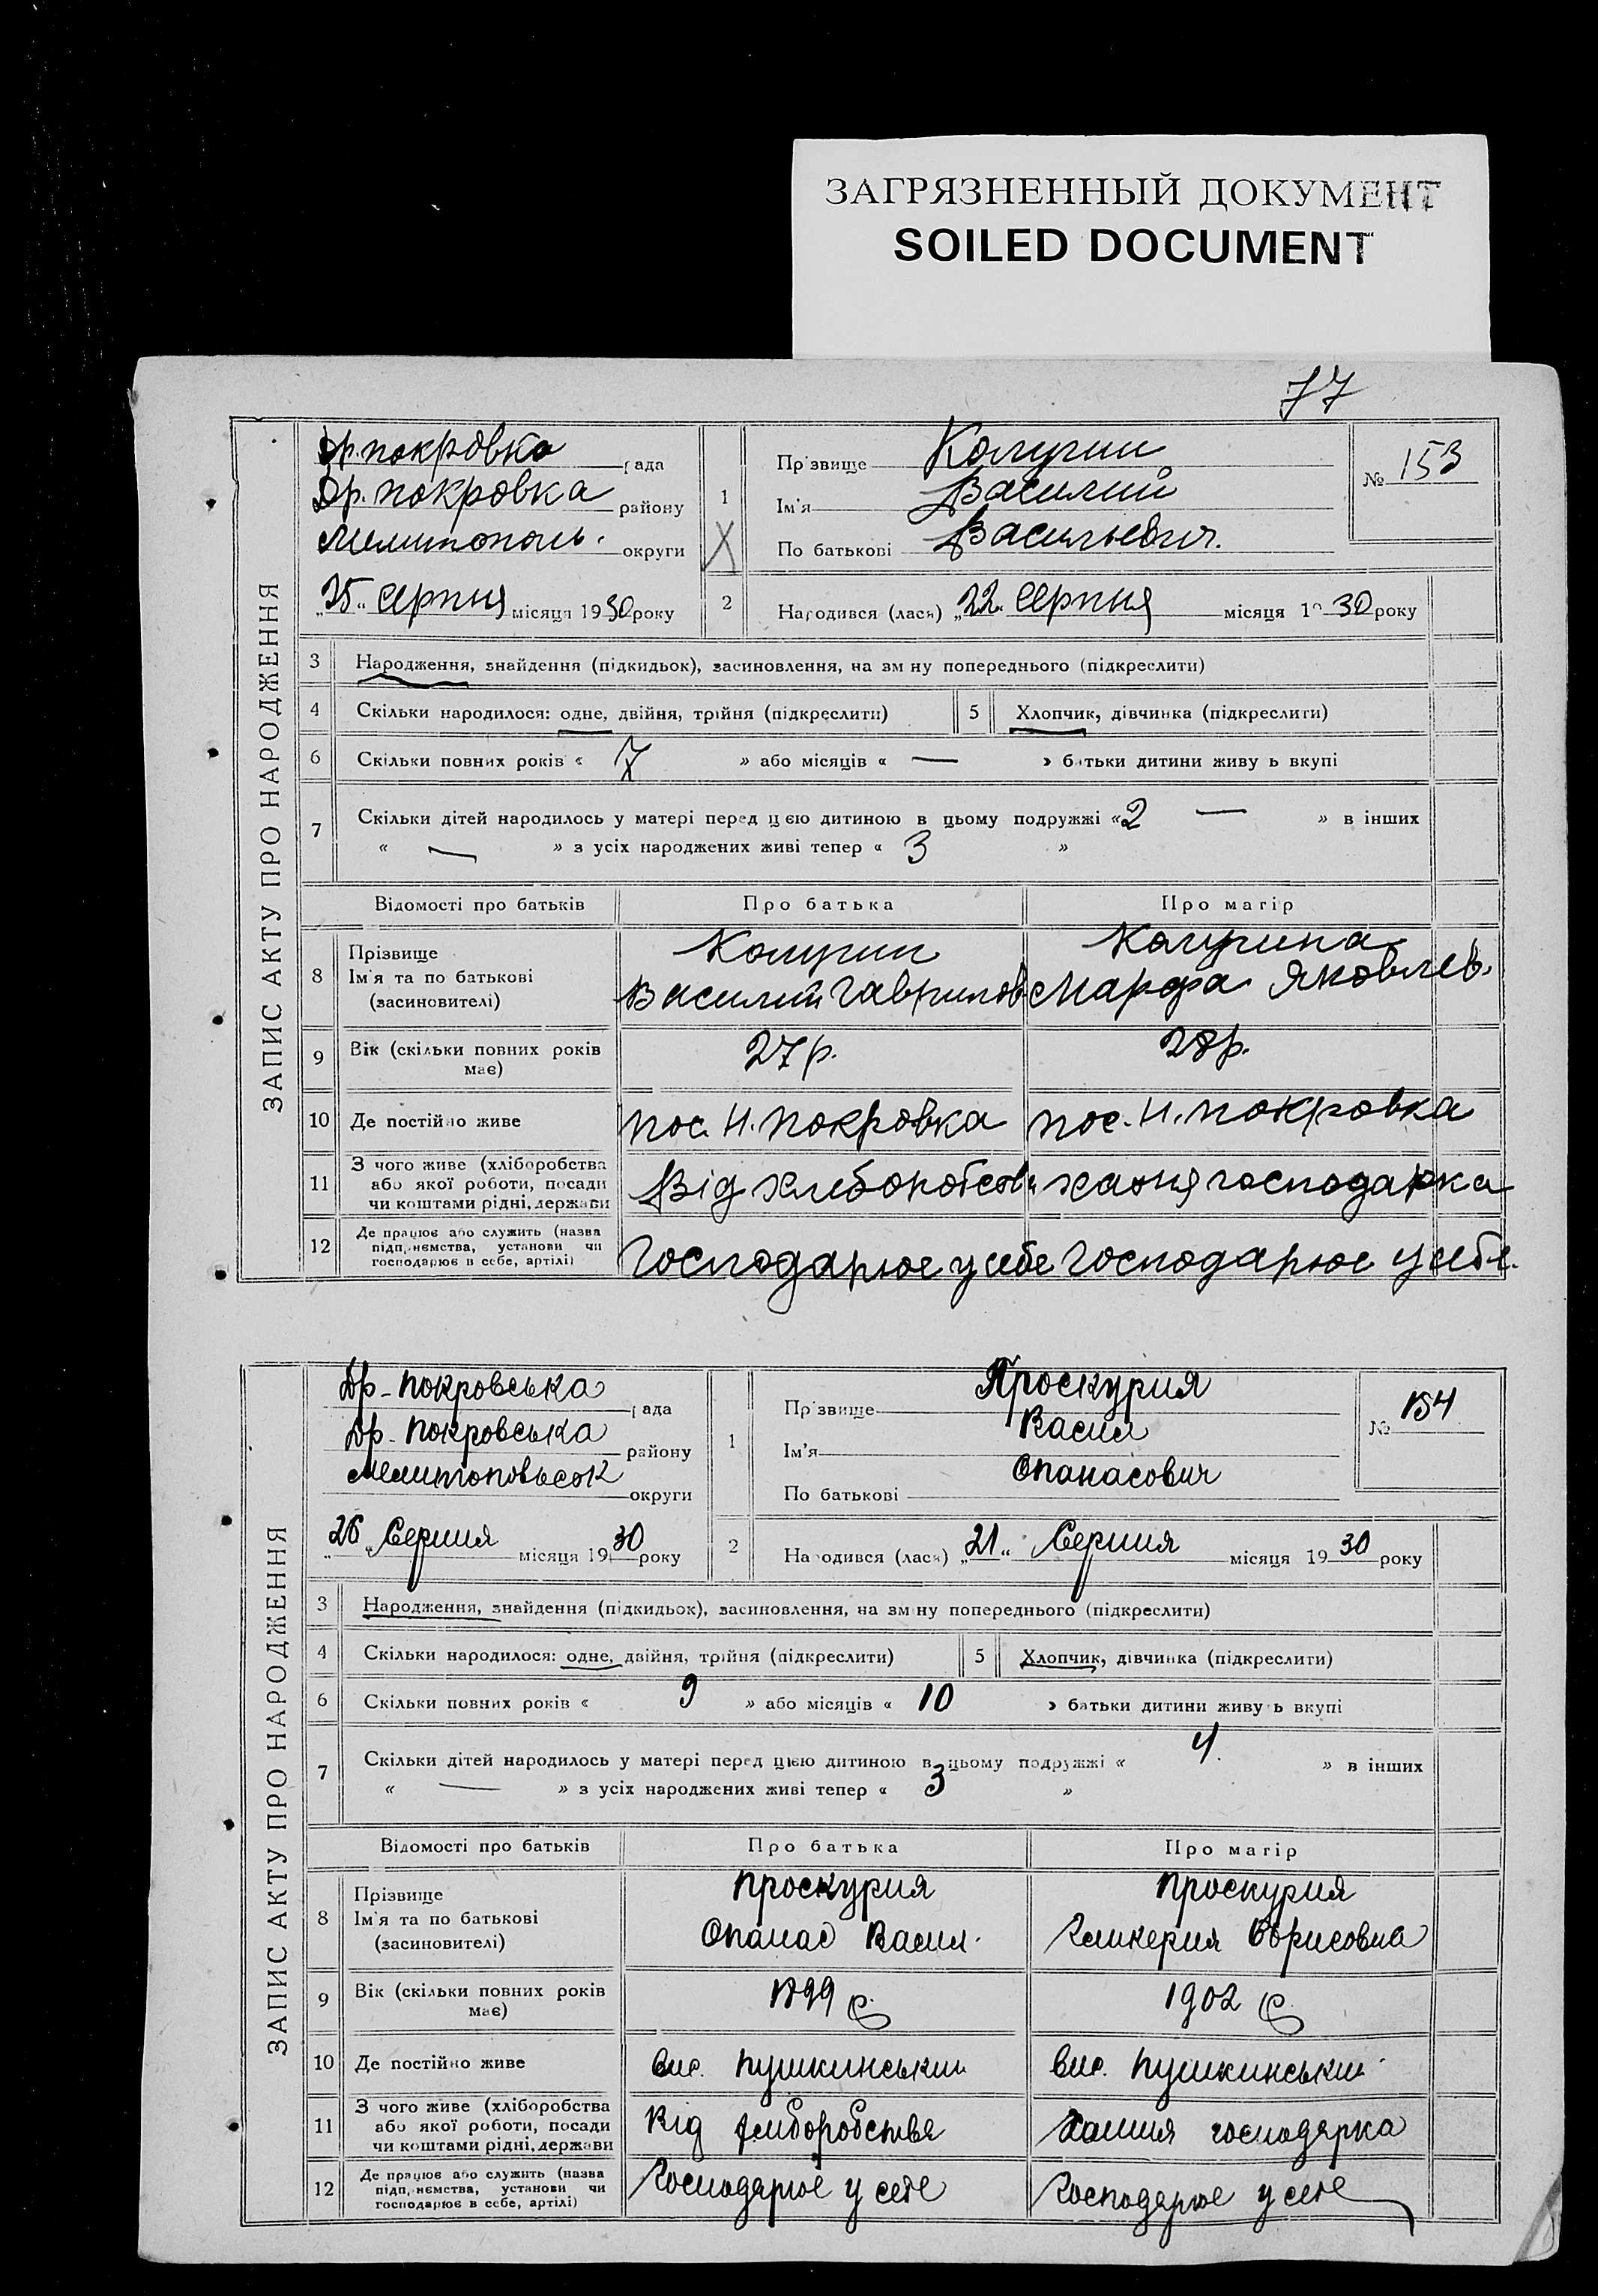 ЗАГРЯЗНЕННЫЙ ДОКУМЕНТ
SOILED DOCUMENT
77
ЗАПИС АКТУ ПРО НАРОДЖЕННЯ
Др. покровка рада
Др. покровка району
Мелитополь. округи
„25" серпня місяця 1930 року
1
Прізвище Калугин
Ім'я Василий
По батькові Васильевич.
№ 153
2 Народився (лася) „22" серпня місяця 1930 року
3 Народження, знайдення (підкидьок), засиновлення, на зміну попереднього (підкреслити)
4 Скільки народилося: одне, двійня, трійня (підкреслити) 5 Хлопчик, дівчинка (підкреслити)
6 Скільки повних років « 7 » або місяців « — » батьки дитини живуть вкупі
7 Скільки дітей народилось у матері перед цією дитиною в цьому подружжі «2 — » в інших
« — » з усіх народжених живі тепер « 3 »
Відомості про батьків Про батька Про матір
8 Прізвище Калугин Калугина
Ім'я та по батькові Василий Гаврилов Марфа Яковлев.
(засиновителі)
9 Вік (скільки повних років має) 27 р. 28 р.
10 Де постійно живе пос. Н. покровка пос. Н. покровка
11 З чого живе (хліборобства
або якої роботи, посади Від хатня господарка
чи коштами рідні, держави
12 Де працює або служить (назва
підприємства, установи чи Господарює у себе Господарює у себе.
господарює в себе, артілі)
ЗАПИС АКТУ ПРО НАРОДЖЕННЯ
Др- покровська рада
Др- покровська району
округи
„26" Серпня місяця 1930 року
1
Прізвище Проскурня
Ім'я Васил
По батькові Опанасович
№ 154
2 Народився (лася) „21" Серпня місяця 1930 року
3 Народження, знайдення (підкидьок), засиновлення, на зміну попереднього (підкреслити)
4 Скільки народилося: одне, двійня, трійня (підкреслити) 5 Хлопчик, дівчинка (підкреслити)
6 Скільки повних років « 9 » або місяців « 10 » батьки дитини живуть вкупі
7 Скільки дітей народилось у матері перед цією дитиною в цьому подружжі « 4. » в інших
« — » з усіх народжених живі тепер « 3 »
Відомості про батьків Про батька Про матір
8 Прізвище Проскурня Проскурня
Ім'я та по батькові Опанас Васил. Гликерия Борисовна
(засиновителі)
9 Вік (скільки повних років має) 1899 р. 1902 р.
10 Де постійно живе вис. Пушкинський вис. Пушкинський
11 З чого живе (хліборобства
або якої роботи, посади Від хлиборобства Хатния господарка
чи коштами рідні, держави
12 Де працює або служить (назва
підприємства, установи чи Господарює у себе Господарює у себе
господарює в себе, артілі)